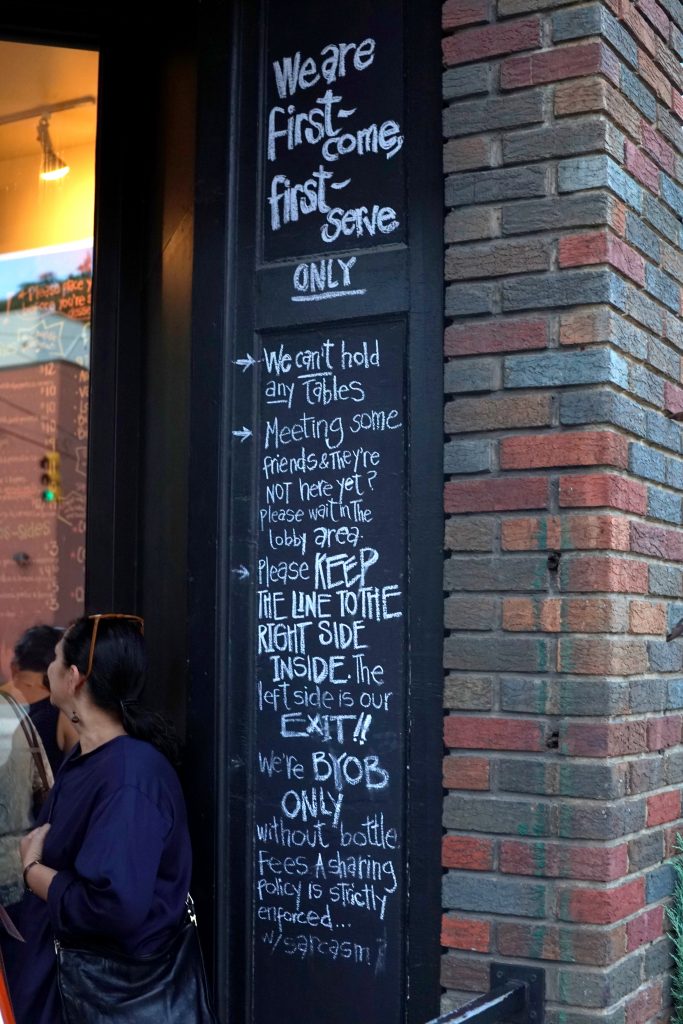 We are
first-
come,
first-
serve
ONLY
→ We can't hold
any Tables
→ Meeting some
friends & They're
NOT here yet?
Please wait in The
lobby area.
→ Please KEEP
THE LINE TO THE
RIGHT SIDE
INSIDE. The
left side is our
EXIT!!
We're BYOB
ONLY
without bottle
fees. A sharing
policy is strictly
enforced...
w/sarcasm?
Please take